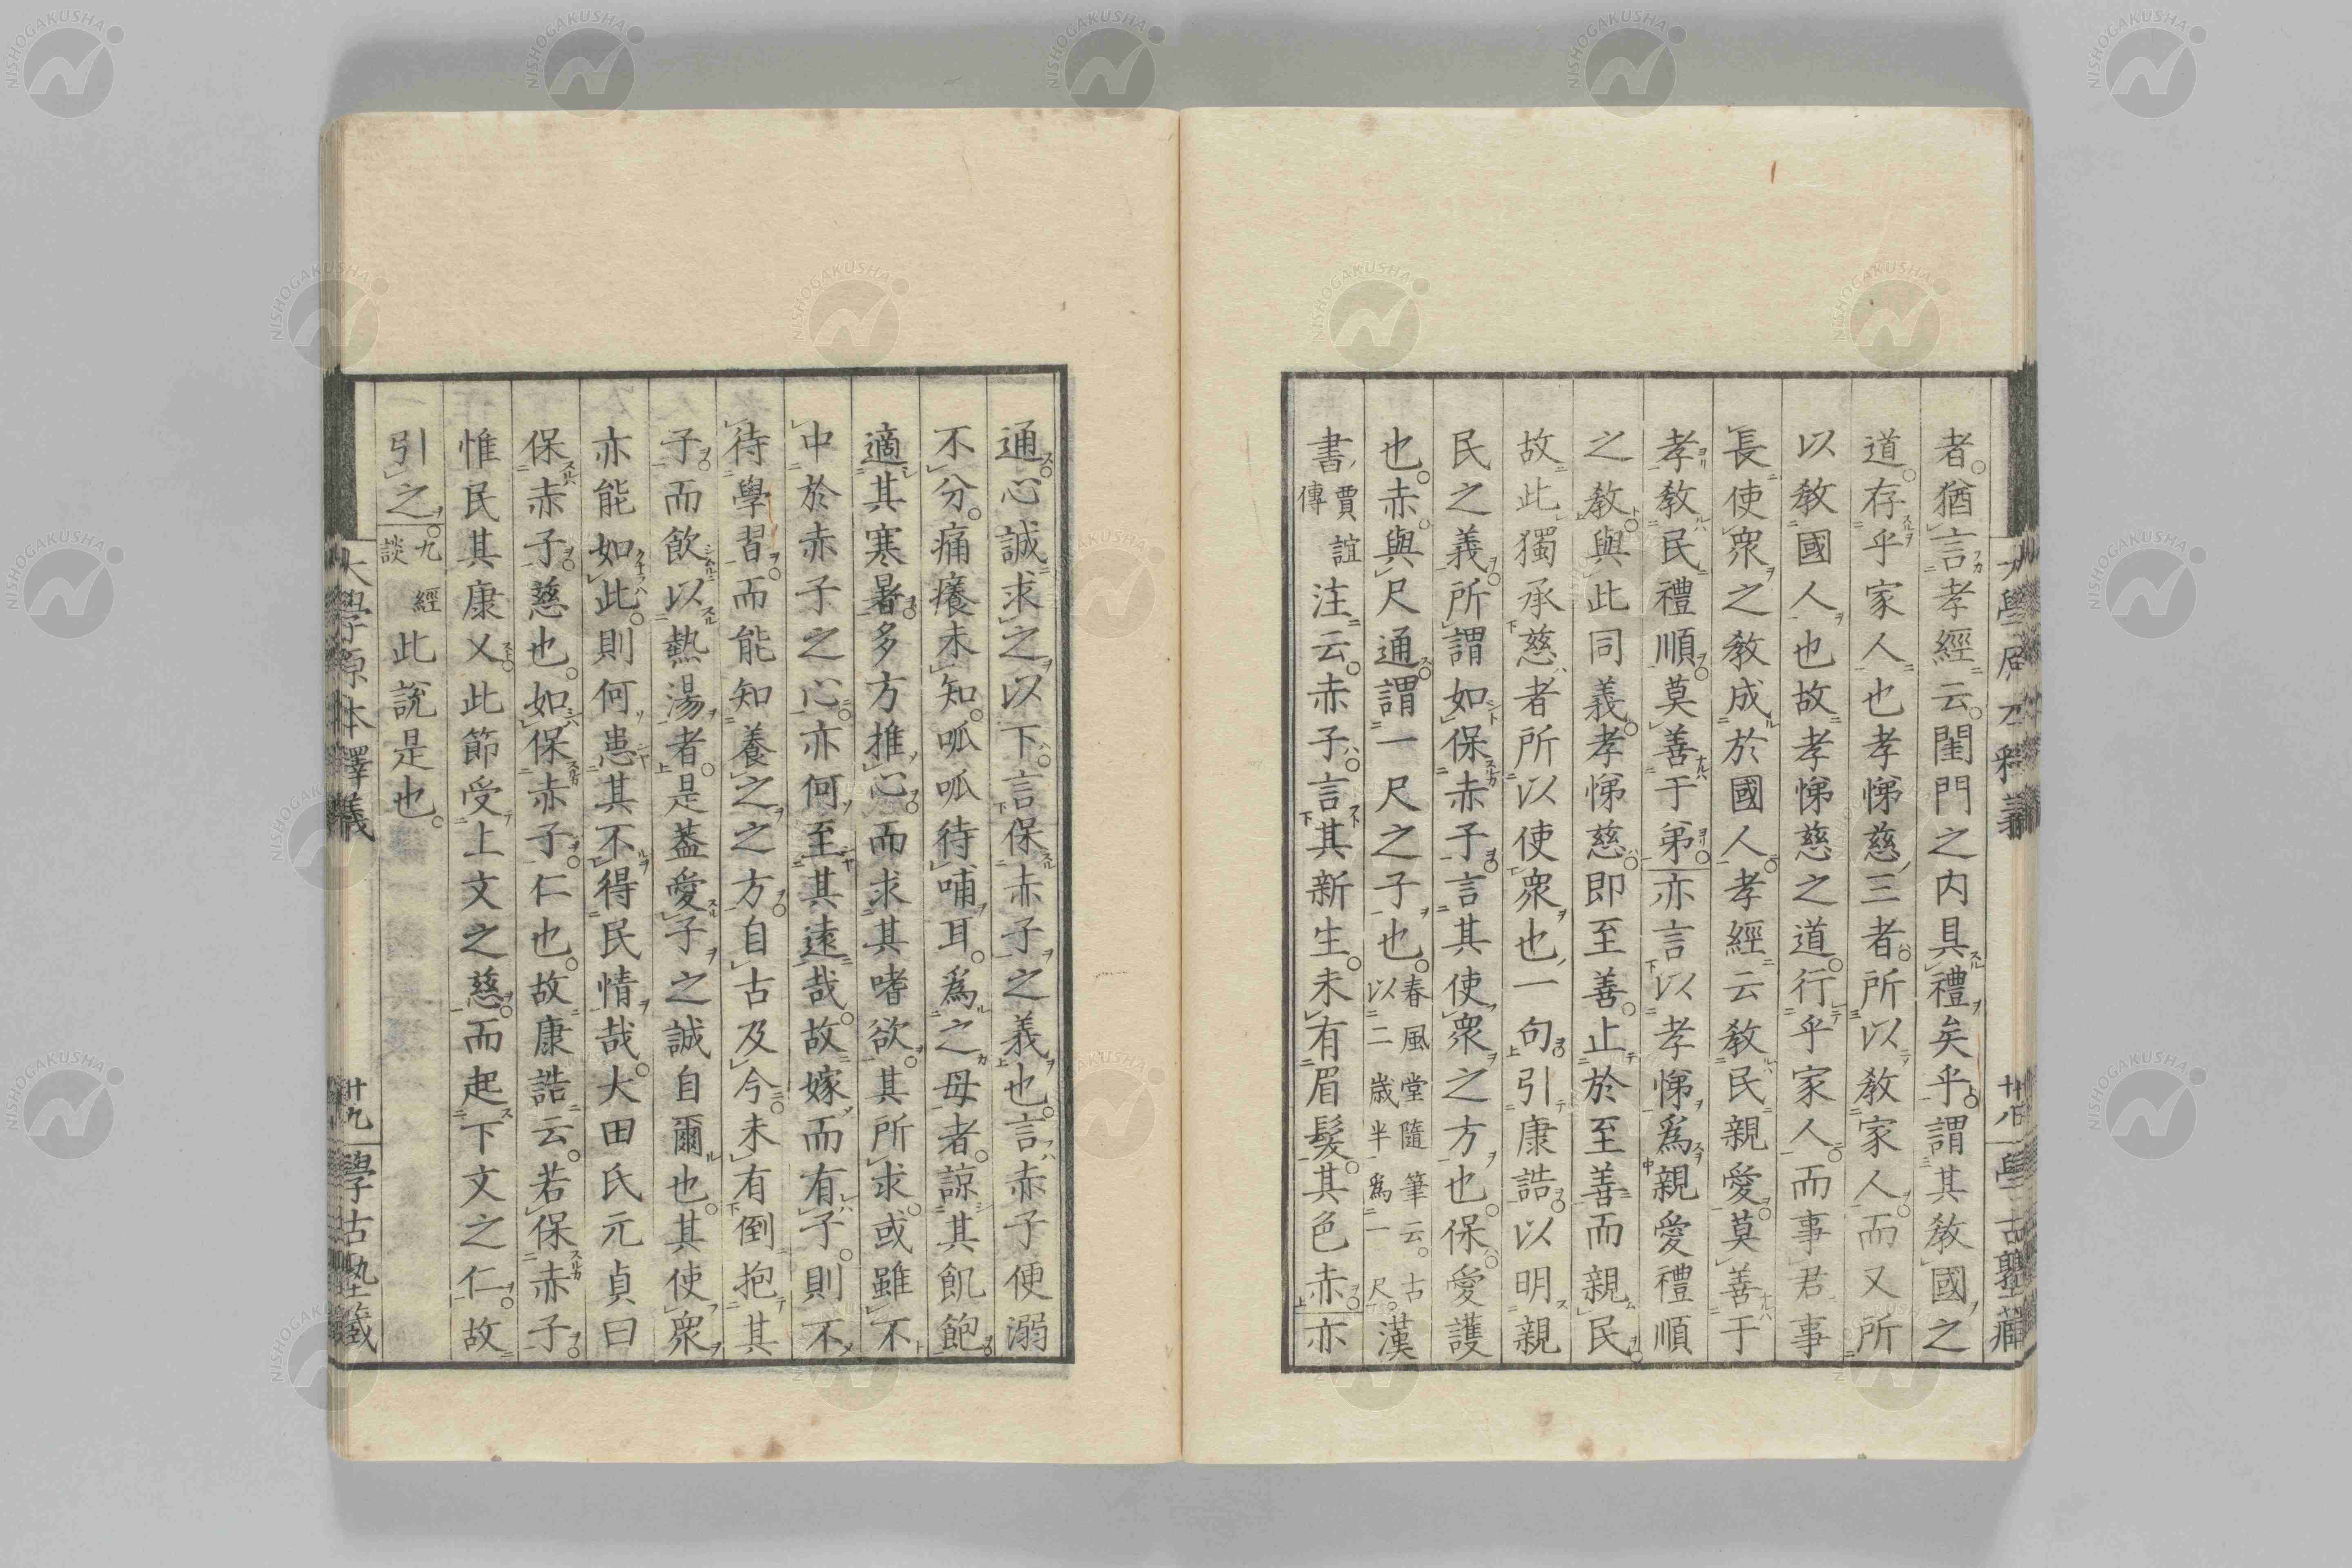 者。猶言孝經云。閨門之内具禮矣乎。謂其教國之
道。存乎家人也孝悌慈三者。所以教家人。而又所
以教國人也故孝悌慈之道。行乎家人。而事君事
長使衆之教成於國人。孝經云教民親愛。莫善于
孝教民禮順。莫善于弟。亦言以孝悌爲親愛禮順
之教。與此同義。孝悌慈。即至善。止於至善而親民。
故此獨承慈者所以使衆也一句。引康誥。以明親
民之義。所謂如保赤子。言其使衆之方也。保。愛護
也。赤與尺通。謂一尺之子也。春風堂隨筆云。古以二歳半爲一尺。漢
書賈誼傳注云。赤子。言其新生。未有眉髮。其色赤。亦
通。心誠求之以下。言保赤子之義也。言赤子便溺
不分。痛癢未知。呱呱待哺耳。爲之母者。諒其飢飽。
適其寒暑。多方推心。而求其嗜欲。其所求。或雖不
中於赤子之心。亦何至其遠哉。故嫁而有子。則不
待學習。而能知養之之方。自古及今。未有倒抱其
子。而飲以熱湯者。是蓋愛子之誠自爾也。其使衆
亦能如此。則何患其不得民情哉。大田氏元貞曰
保赤子。慈也。如保赤子。仁也。故康誥云。若保赤子。
惟民其康乂。此節受上文之慈。而起下文之仁。故
引之。九經談此説是也。
大學原本釋義
廿八
學古塾藏
大學原本釋義
廿九
學古塾藏
NISHOGAKUSHA